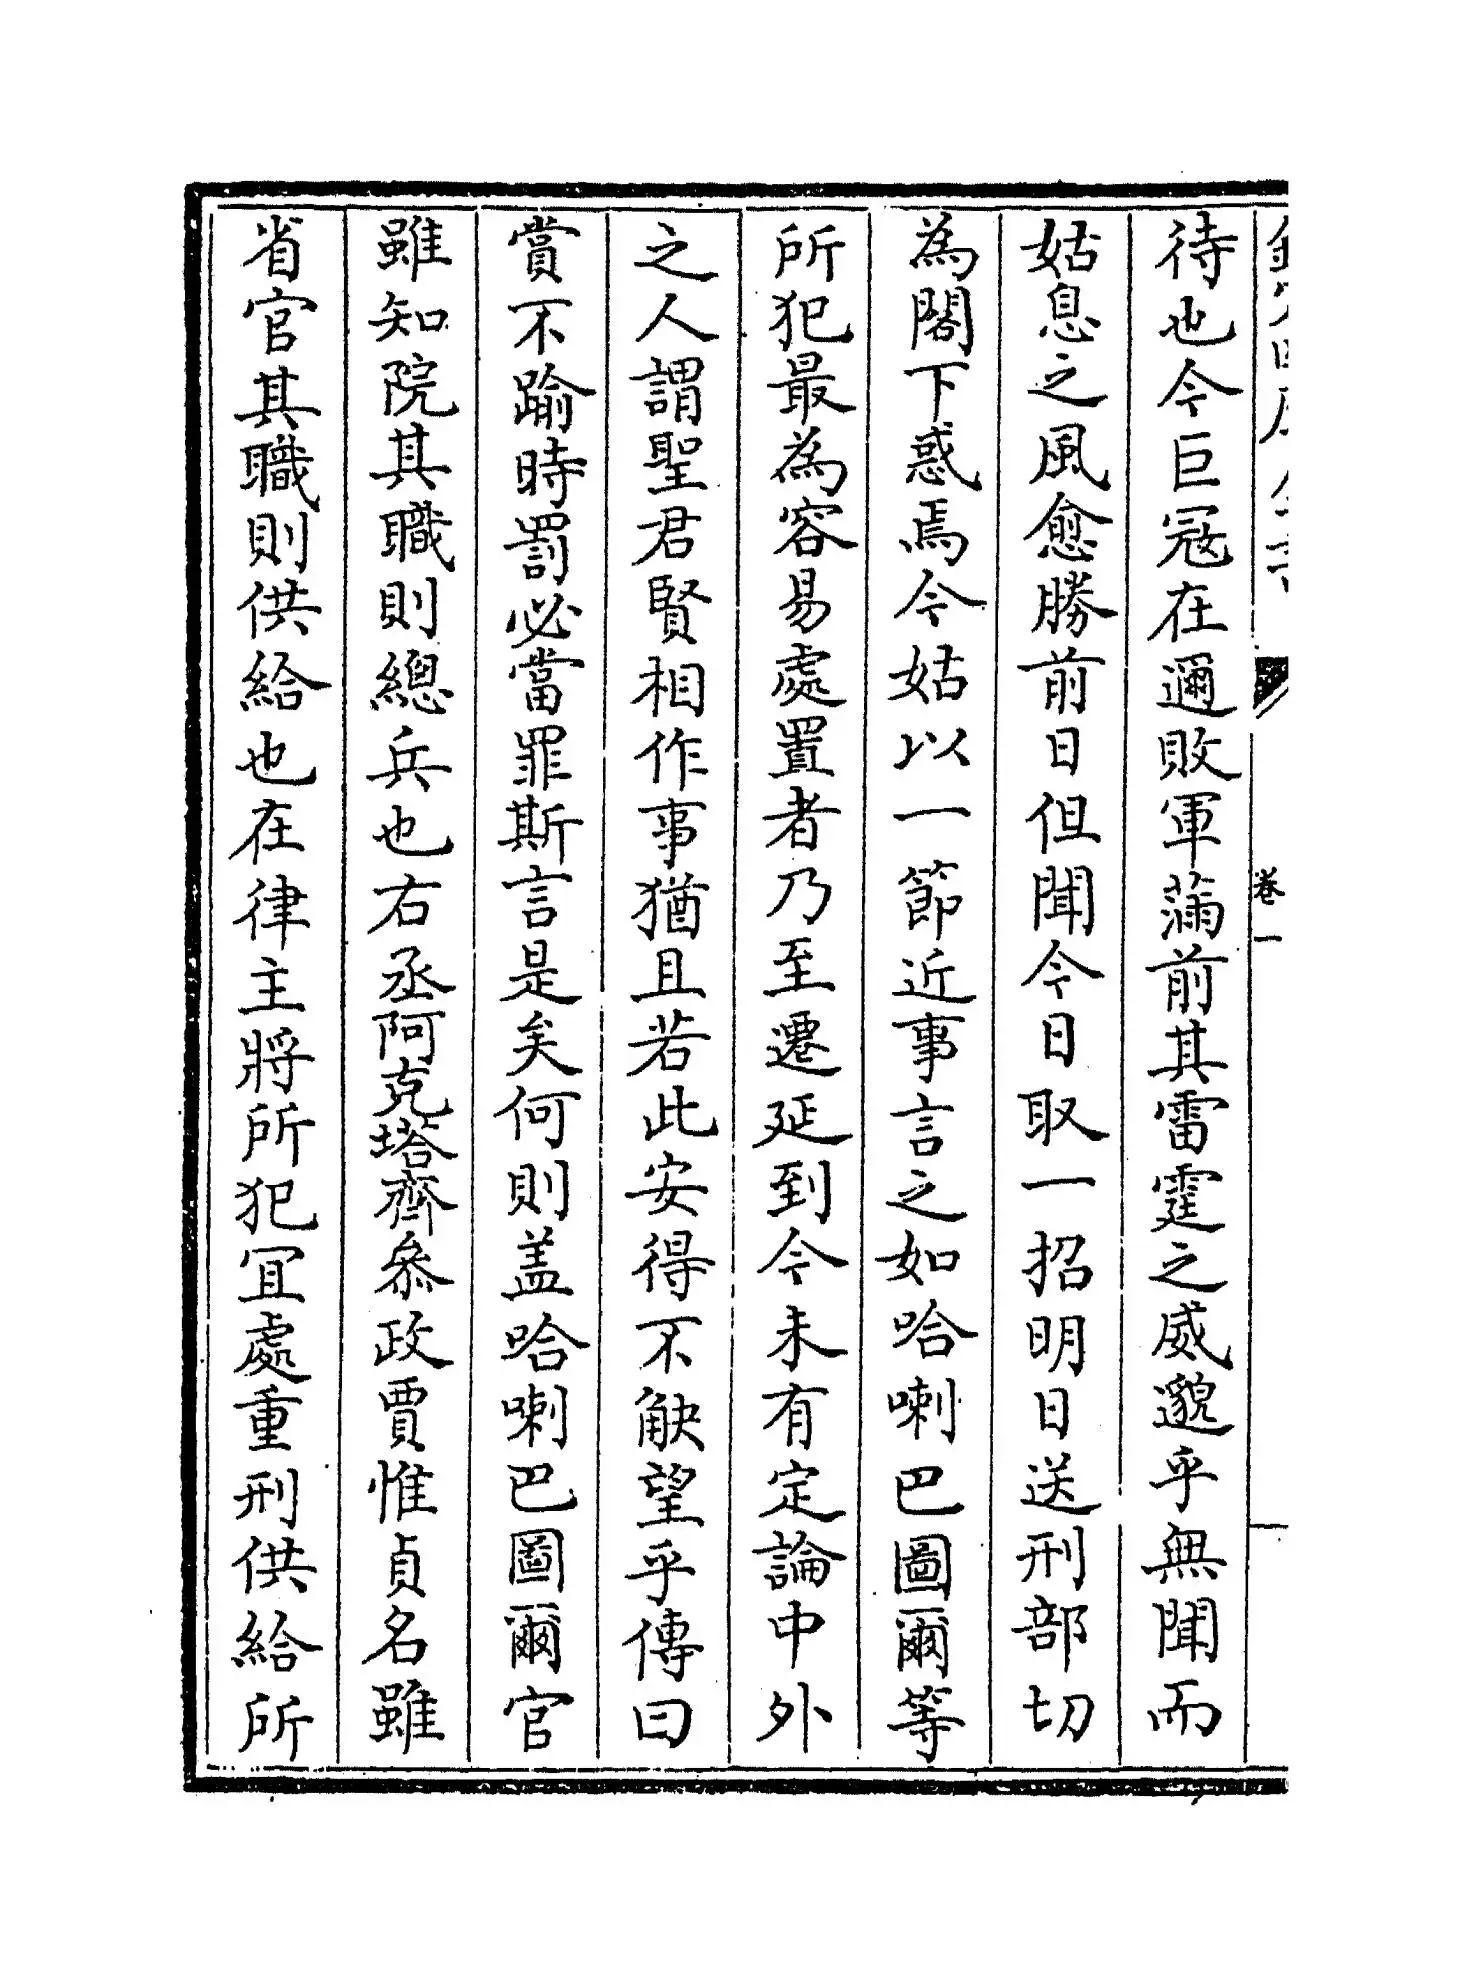 卷一
待也今巨冦在邇敗軍滿前其雷霆之威邈乎無聞而
姑息之風愈勝前日但聞今日取一招明日送刑部切
為閣下惑焉今姑以一節近事言之如哈喇巴圖爾等
所犯最為容易處置者乃至遷延到今未有定論中外
之人謂聖君賢相作事猶且若此安得不觖望乎傳曰
賞不踰時罰必當罪斯言是矣何則盖哈喇巴圖爾官
雖知院其職則總兵也右丞阿克塔齊叅政賈惟貞名雖
省官其職則供給也在律主將所犯冝處重刑供給所